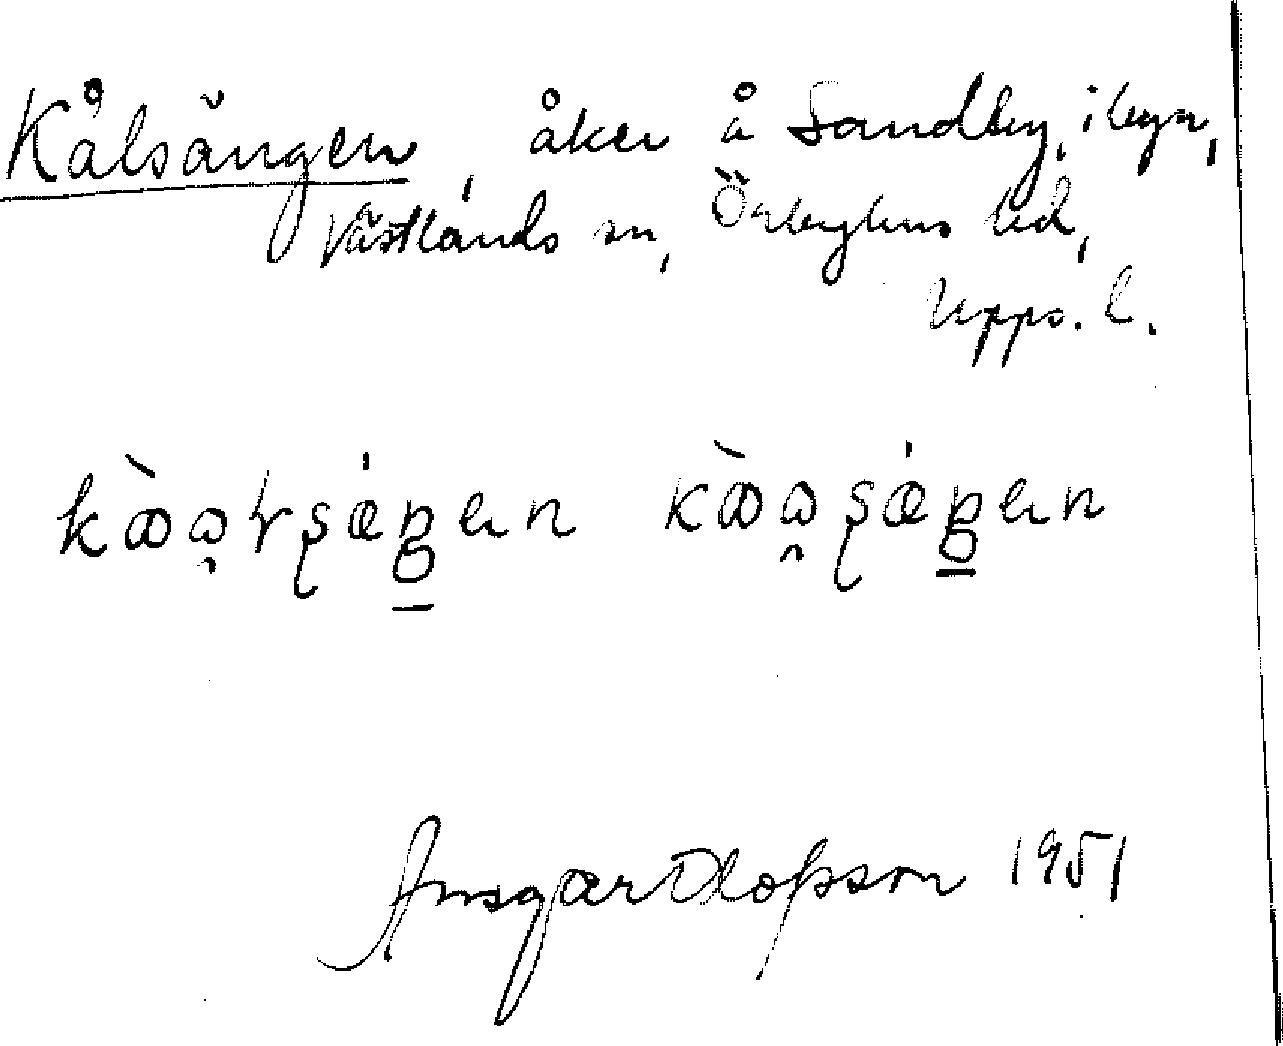 Kålsängen, åker å Sandby, i byn,
Västlands sn, Örbyhus hd,
Upps. l.
Ansgar Olofsson 1951